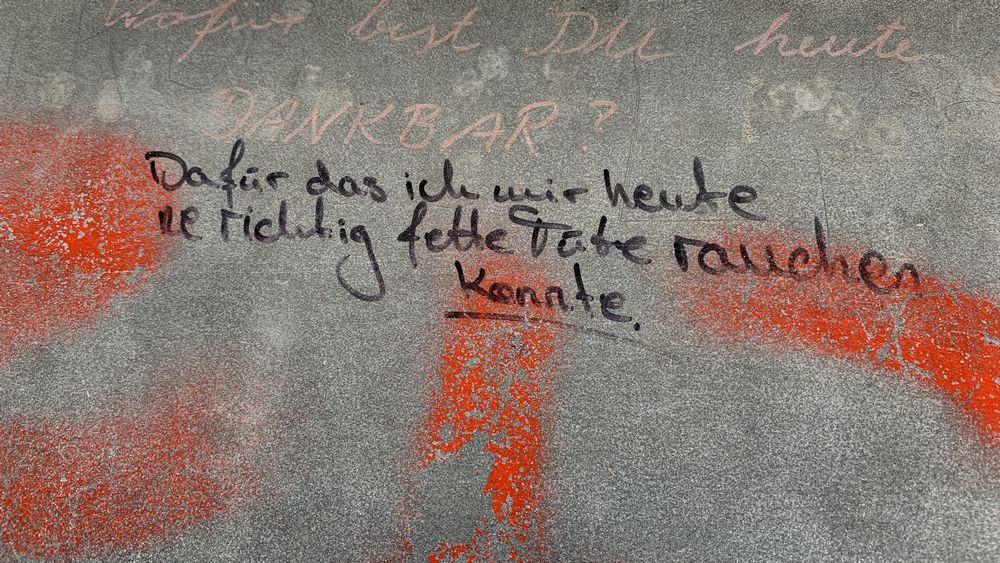 Wofür bist DU heute
DANKBAR?
Dafür das ich mir heute
ne richtig fette Tüte rauchen
konnte.